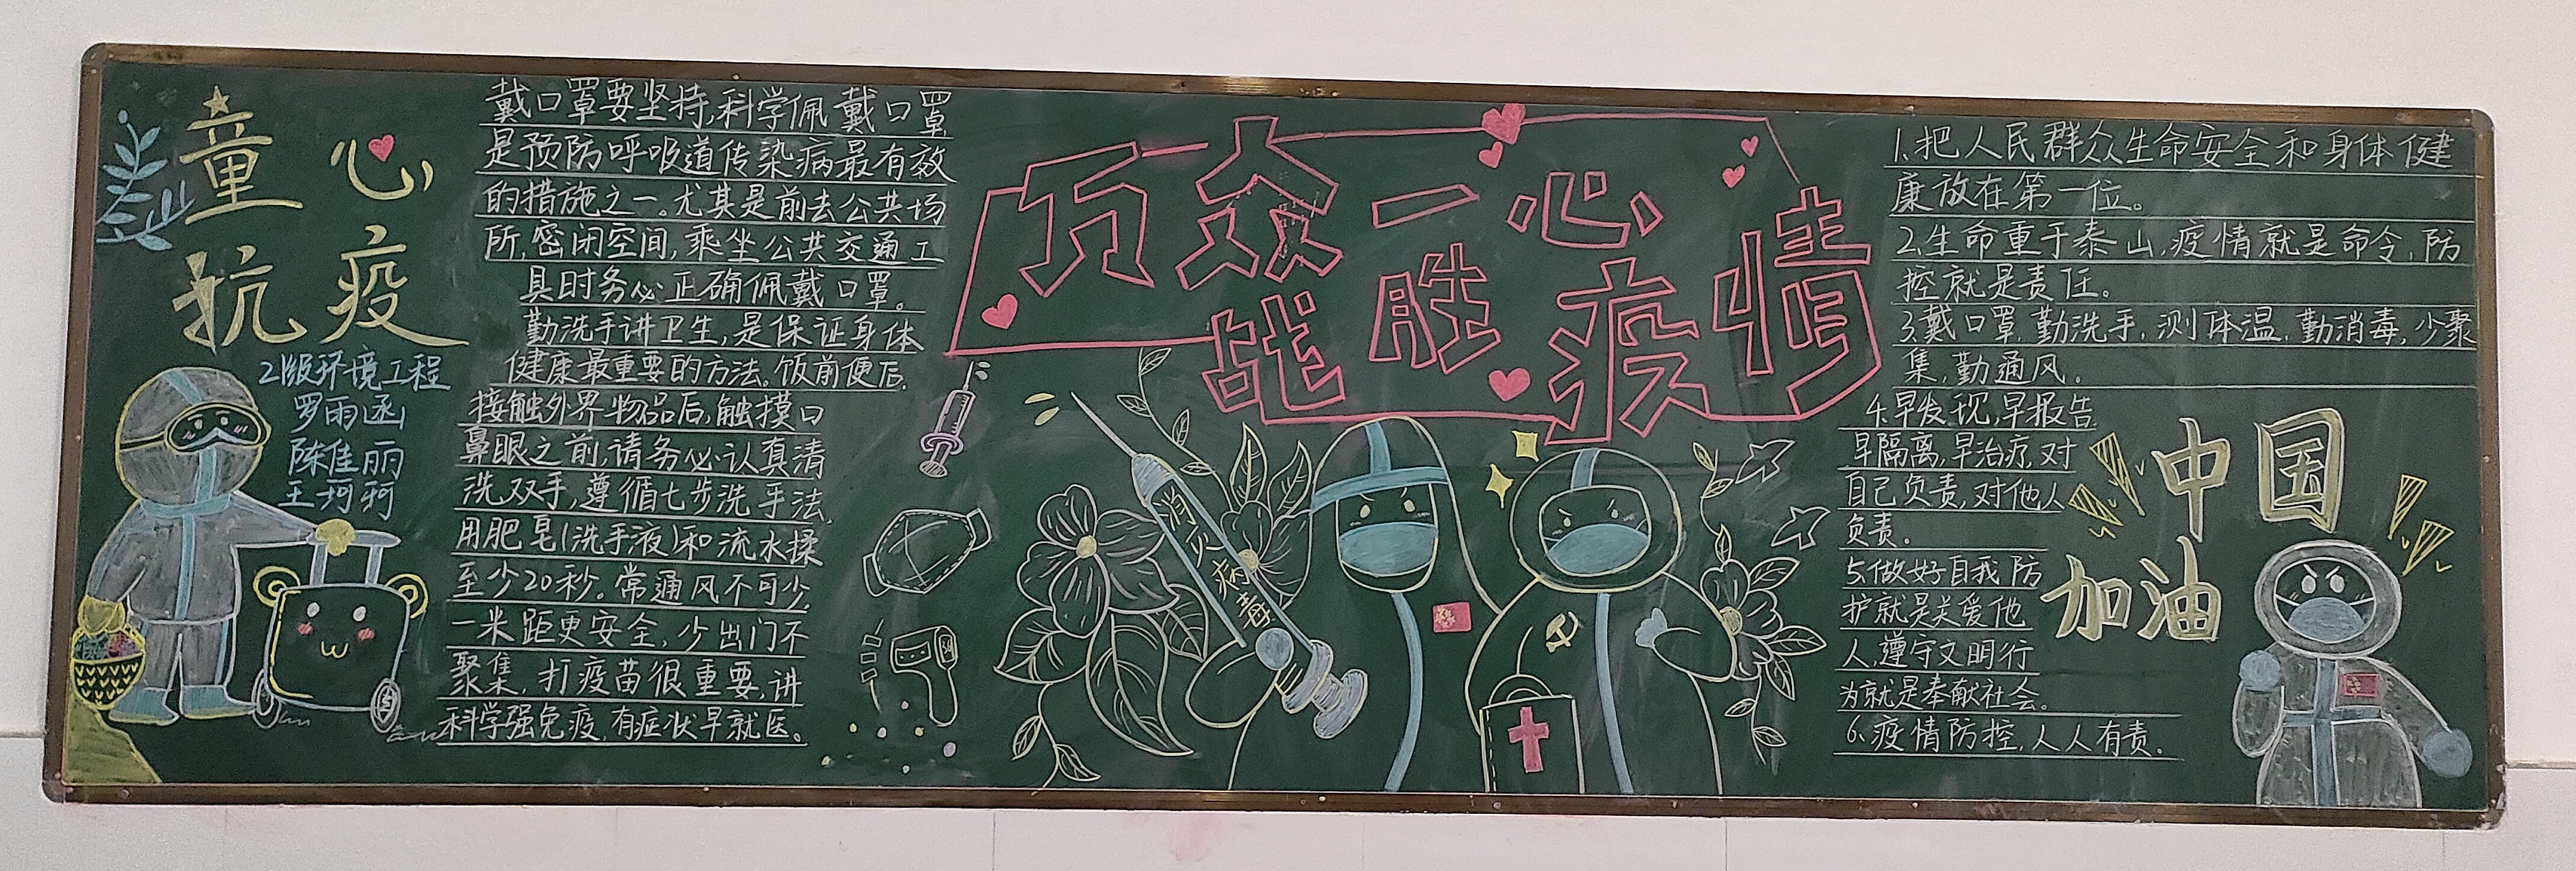 童心
抗疫
2版环境工程
罗雨函
陈佳丽
王珂珂
戴口罩要坚持,科学佩戴口罩
是预防呼吸道传染病最有效
的措施之一。尤其是前去公共场
所,密闭空间,乘坐公共交通工
具时务必正确佩戴口罩。
勤洗手讲卫生,是保证身体
健康最重要的方法。饭前便后,
接触外界物品后,触摸口
鼻眼之前,请务必认真清
洗双手,遵循七步洗手法,
用肥皂(洗手液)和流水揉
至少20秒。常通风不可少,
一米距更安全,少出门不
聚集,打疫苗很重要,讲
科学强免疫,有症状早就医。
万众一心
战胜疫情
消灭病毒
1.把人民群众生命安全和身体健
康放在第一位。
2.生命重于泰山,疫情就是命令,防
控就是责任。
3.戴口罩,勤洗手,测体温,勤消毒,少聚
集,勤通风。
4.早发现,早报告
早隔离,早治疗,对
自己负责,对他人
负责.
5.做好自我防
护就是关爱他
人,遵守文明行
为就是奉献社会。
6.疫情防控,人人有责.
中国
加油